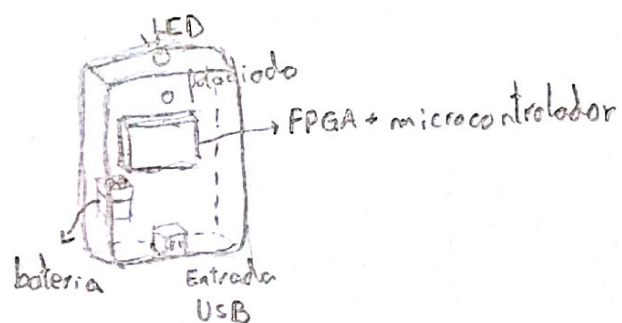 LED
fotodiodo
FPGA + microcontrolador
bateria
Entrada
USB